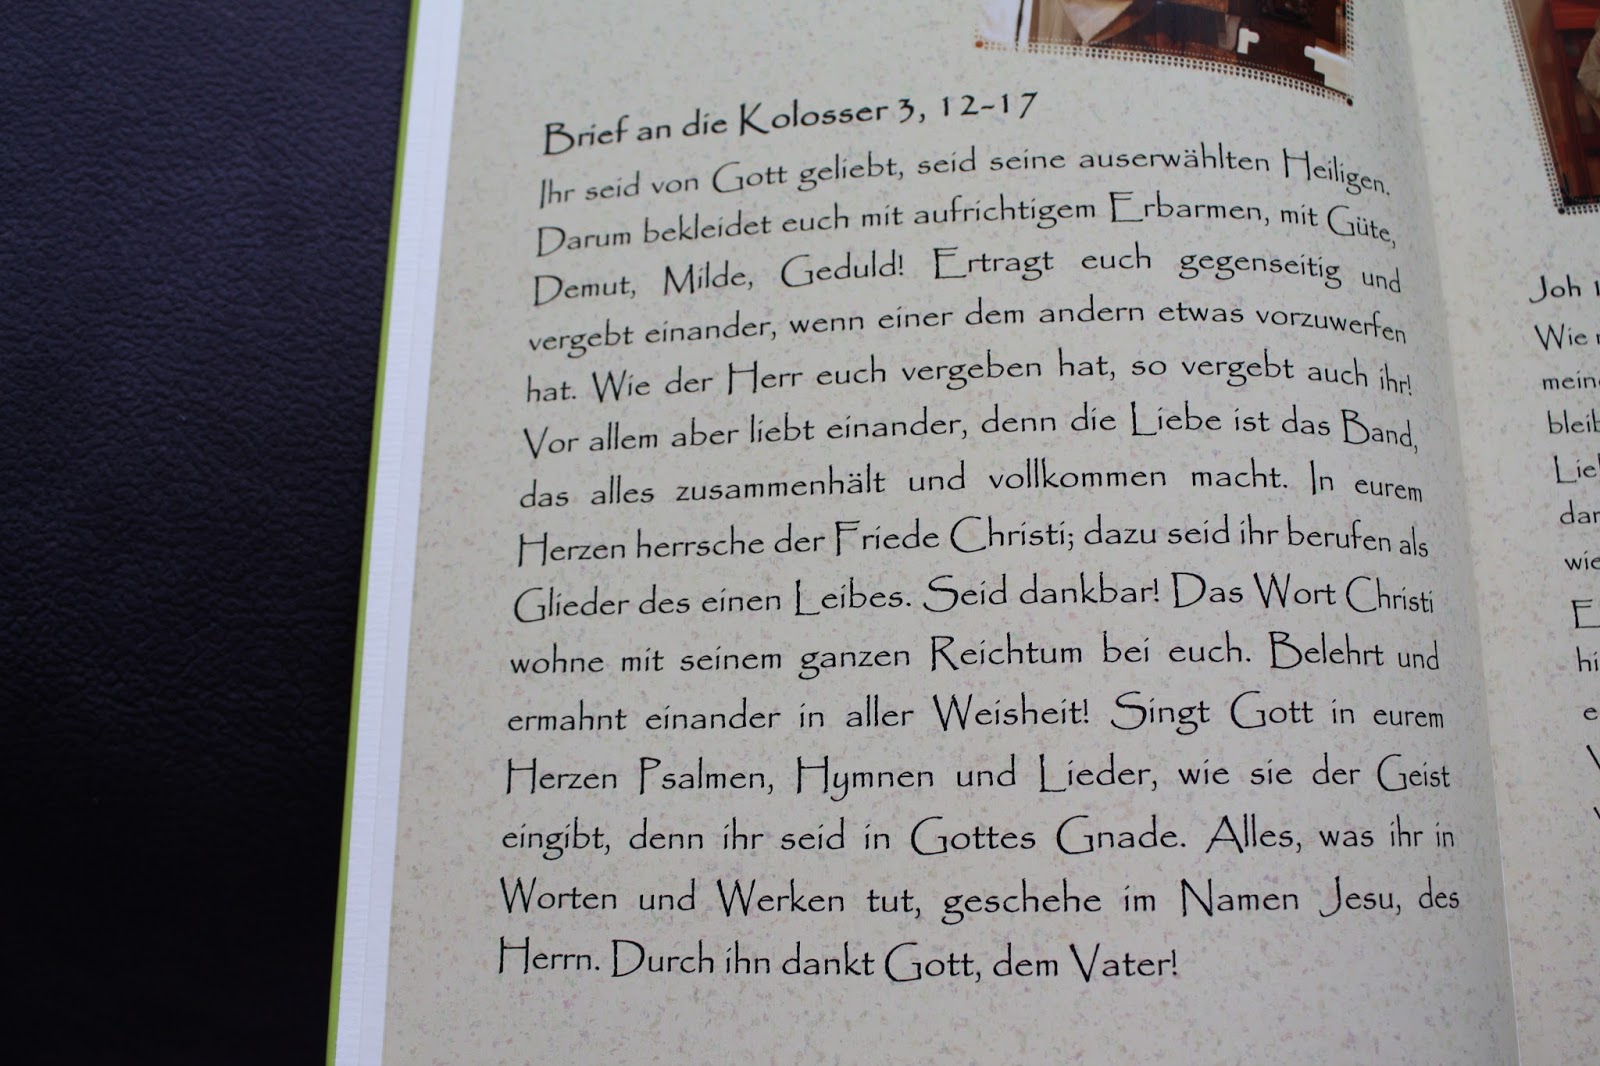 Brief an die Kolosser 3, 12-17
Ihr seid von Gott geliebt, seid seine auserwählten Heiligen.
Darum bekleidet euch mit aufrichtigem Erbarmen, mit Güte,
Demut, Milde, Geduld! Ertragt euch gegenseitig und
vergebt einander, wenn einer dem andern etwas vorzuwerfen
hat. Wie der Herr euch vergeben hat, so vergebt auch ihr!
Vor allem aber liebt einander, denn die Liebe ist das Band,
das alles zusammenhält und vollkommen macht. In eurem
Herzen herrsche der Friede Christi; dazu seid ihr berufen als
Glieder des einen Leibes. Seid dankbar! Das Wort Christi
wohne mit seinem ganzen Reichtum bei euch. Belehrt und
ermahnt einander in aller Weisheit! Singt Gott in eurem
Herzen Psalmen, Hymnen und Lieder, wie sie der Geist
eingibt, denn ihr seid in Gottes Gnade. Alles, was ihr in
Worten und Werken tut, geschehe im Namen Jesu, des
Herrn. Durch ihn dankt Gott, dem Vater!
Joh
Wie